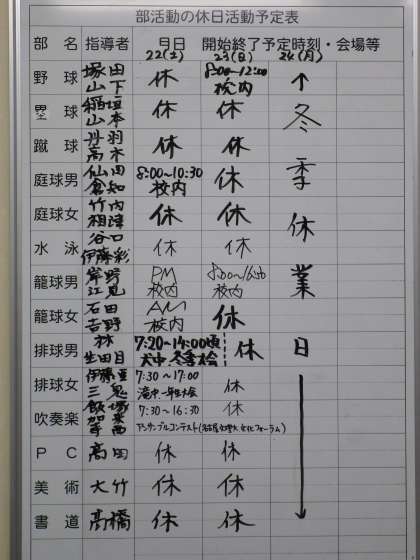 部活動の休日活動予定表
部 名 指導者 月日 開始終了予定時刻・会場等
22(土) 23(日) 24(月)
野 球 塚田 山下 休 8:00〜12:00 校内
塁 球 稲垣 山本 休 休
蹴 球 丹羽 高木 休 休
庭球男 仙田 倉知 8:00〜10:30 校内 休
庭球女 竹内 相津 休 休
水 泳 谷口 伊藤彩 休 休
籠球男 岸野 江見 PM 校内 8:00〜16:30 校内
籠球女 石田 吉野 AM 校内 休
排球男 林 生田目 7:20〜14:00頃 犬中 冬季大会 休
排球女 伊藤 三鬼 7:30〜17:00 滝中 一年生大会 休
吹奏楽 飯塚 加来 寺西 7:30〜16:30 休
アンサンブルコンテスト(名古屋 文化フォーラム)
P C 高田 休 休
美 術 大竹 休 休
書 道 高橋 休 休
冬季休業日